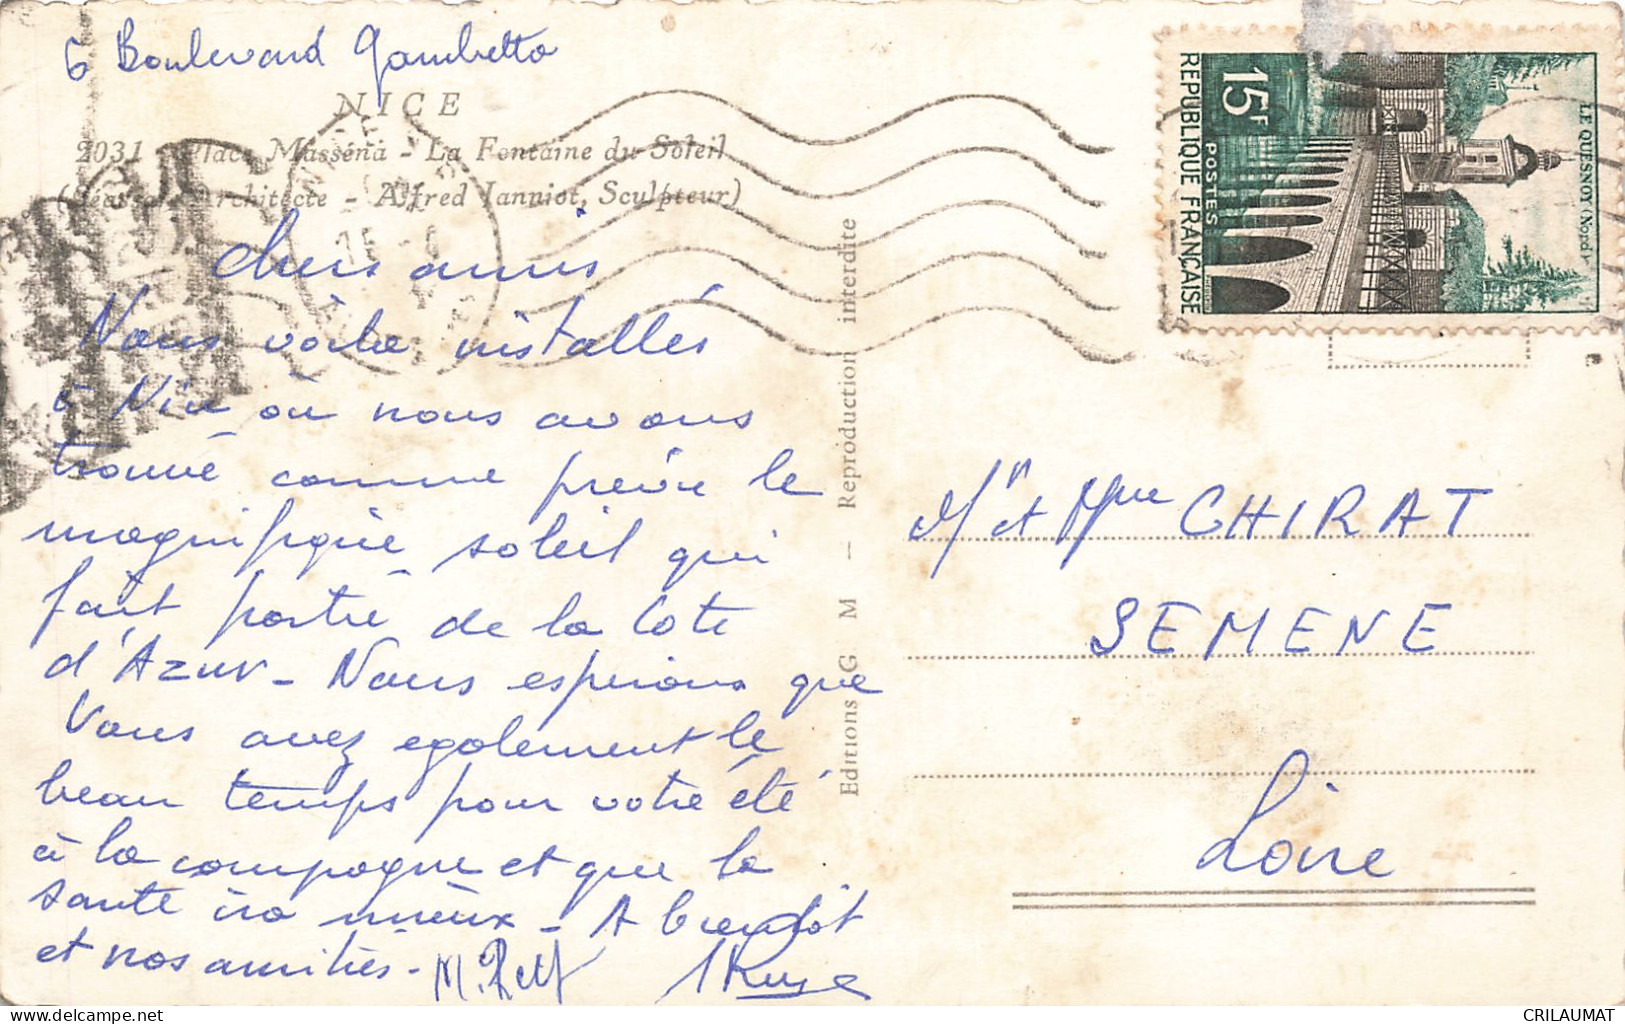 6 Boulevard Gambetta
NICE
2031 - Place Masséna - La Fontaine du Soleil
Architecte - Alfred Janniot, Sculpteur)
Chers amis
Nous voila installés
à Nice où nous avons
trouvé comme prévu le
magnifique soleil qui
fait partie de la Cote
d'Azur - Nous espérons que
Vous avez egalement le
beau temps pour votre été
à la campagne et que la
santé ira mieux - A bientôt
et nos amitiés -
Editions G M - Reproduction interdite
15F
POSTES
REPUBLIQUE FRANÇAISE
LE QUESNOY (Nord)
Mr et Mme CHIRAT
SEMENE
Loire
CRILAUMAT